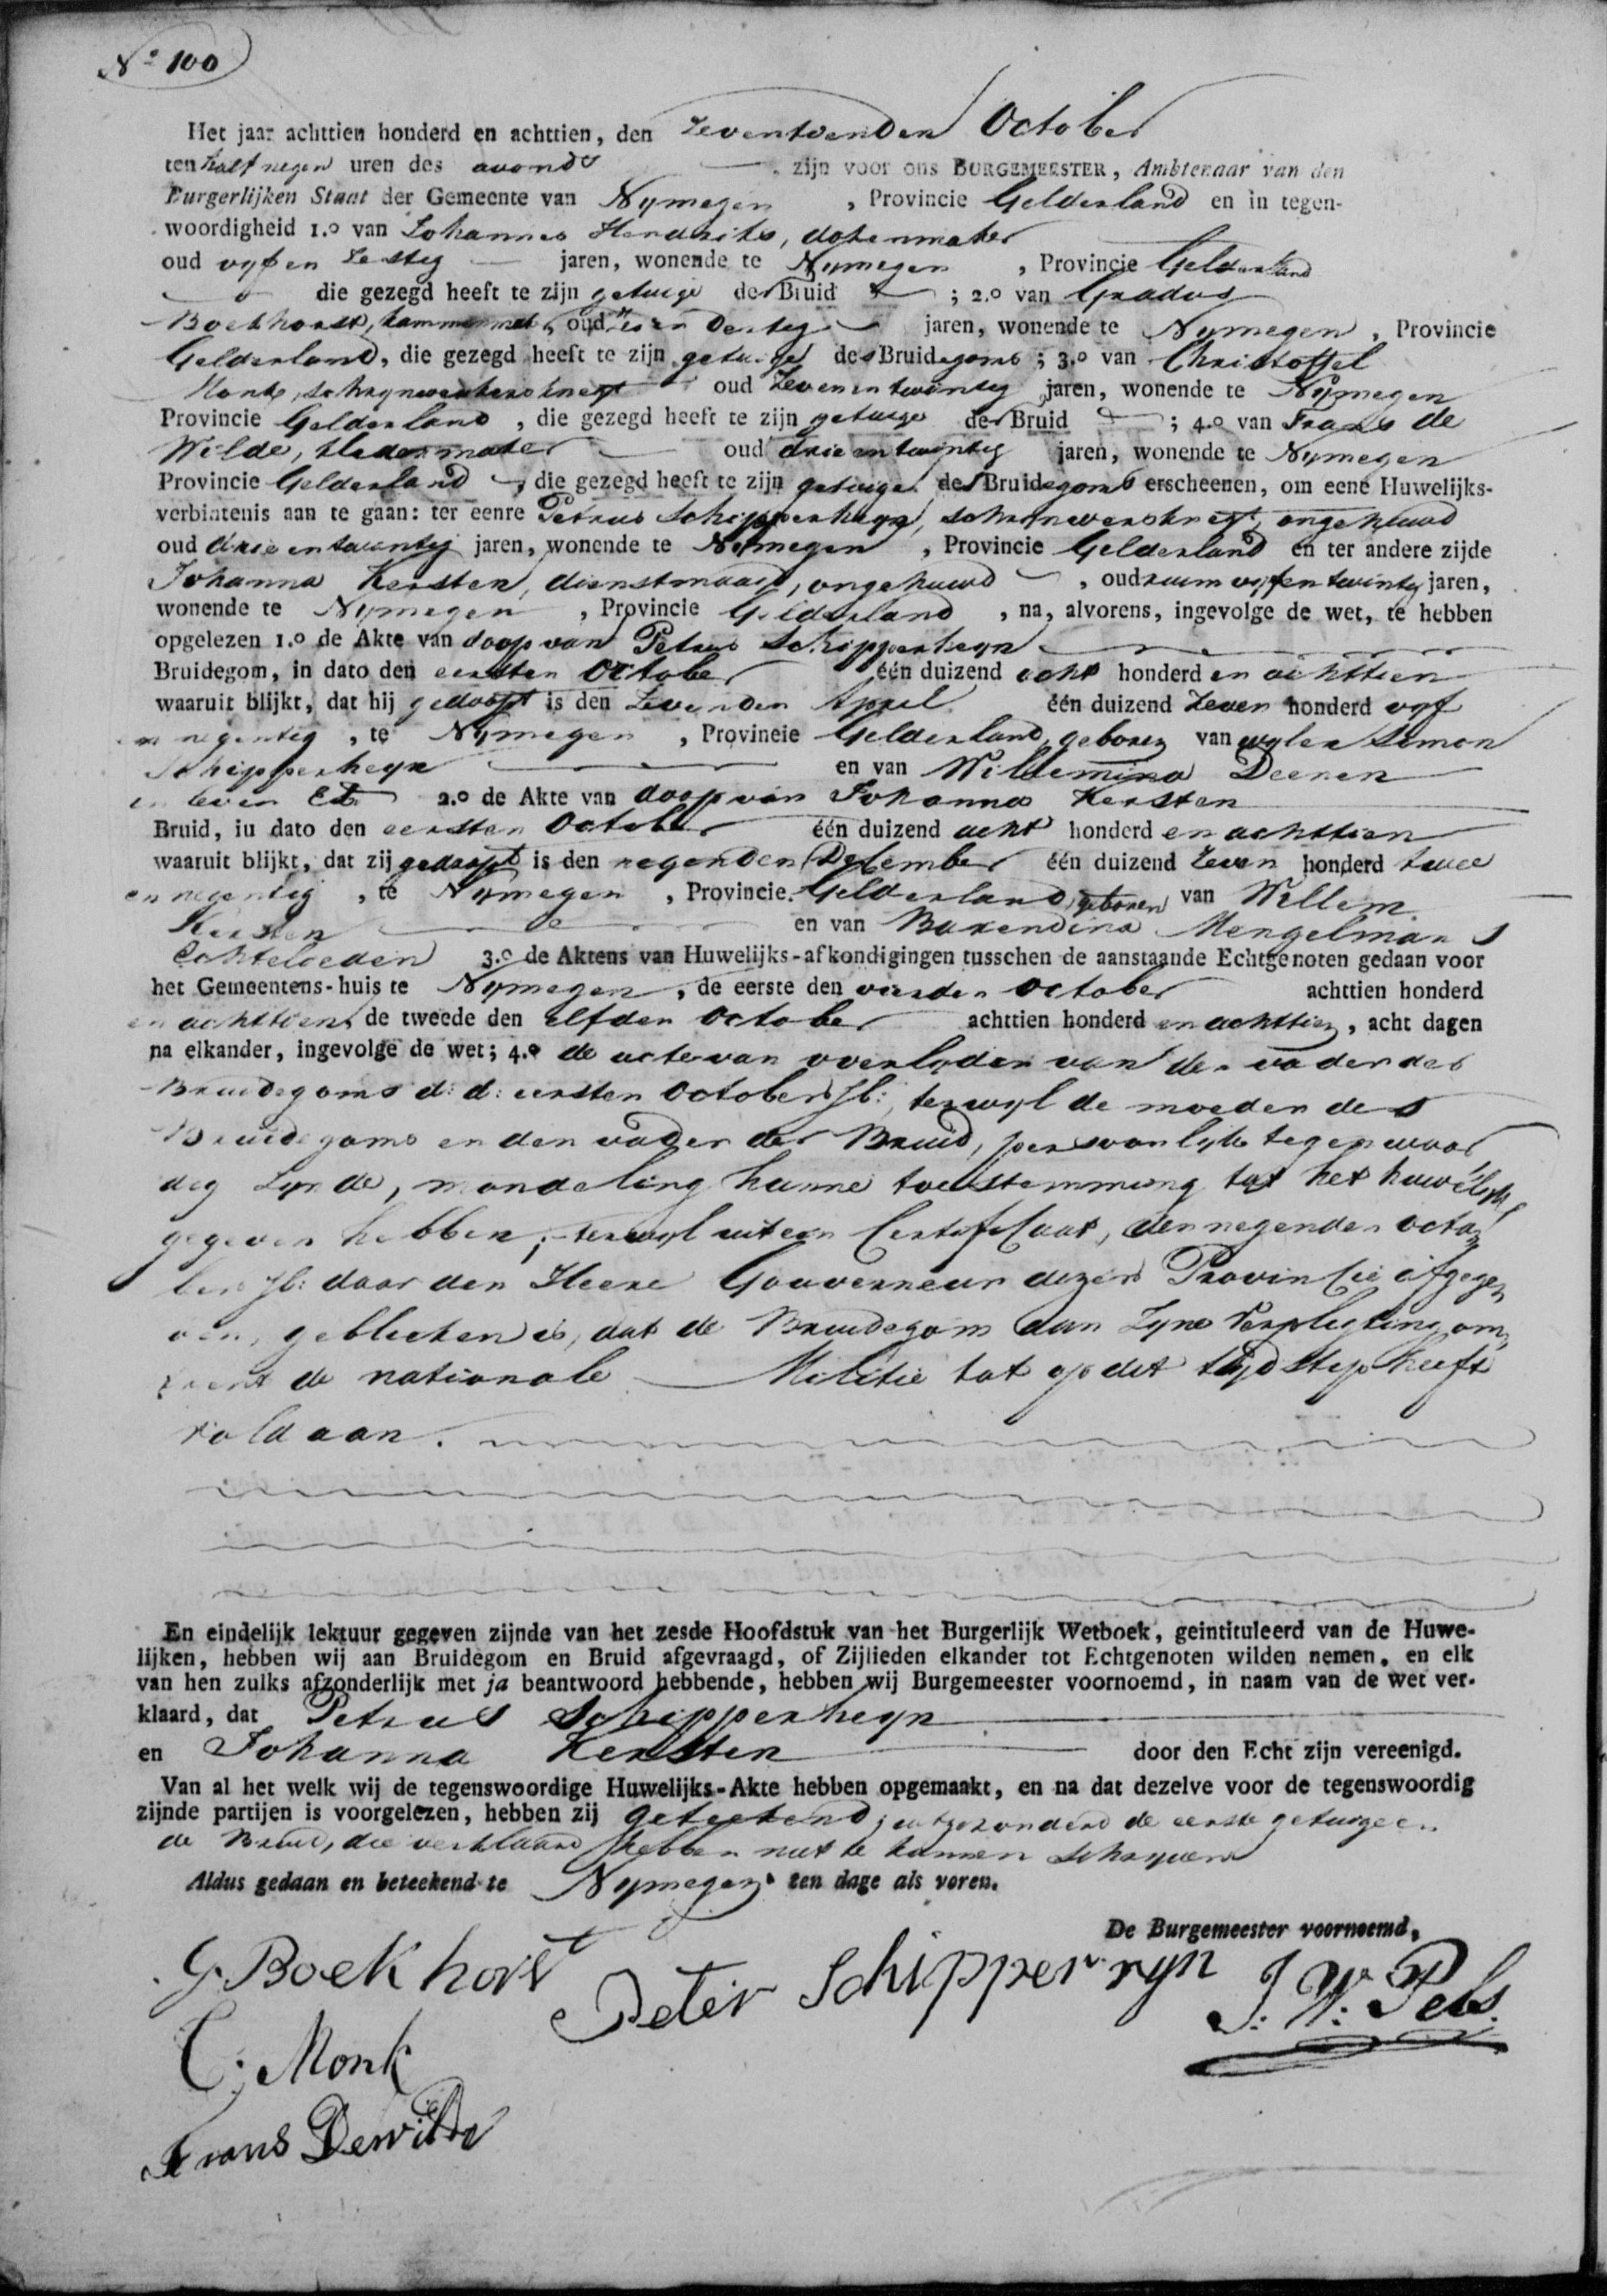 N.o 100
Het jaar achttien honderd en achttien, den Zeventienden October
ten half negen uren des avonds zijn voor ons BURGEMEESTER, Ambtenaar van den
Burgerlijken Staat der Gemeente van Nymegen, Provincie Gelderland en in tegen-
woordigheid 1.o van Johannes Hendriks, dozenmaker
oud vyf en Zestig jaren, wonende te Nymegen, Provincie Gelderland
die gezegd heeft te zijn getuige der Bruid; 2.o van Gradus
Boekhorst, kammemaker, oud en dertig jaren, wonende te Nymegen, Provincie
Gelderland, die gezegd heeft te zijn getuige des Bruidegoms; 3.o van Christoffel
Monk, schrynwerkersknegt oud Zeven en twintig jaren, wonende te Nymegen
Provincie Gelderland, die gezegd heeft te zijn getuige der Bruid; 4.o van Frans de
Wilde, kledermaker oud drie en twintig jaren, wonende te Nymegen
Provincie Gelderland, die gezegd heeft te zijn getuige des Bruidegoms erscheenen, om eene Huwelijks-
verbintenis aan te gaan: ter eenre Petrus Schipperheyn, schrynwerksknegt, ongehuwd
oud drie en twintig jaren, wonende te Nymegen, Provincie Gelderland en ter andere zijde
Johanna Kersten, dienstmaagd, ongehuwd, oud ruim vyf en twintig jaren,
wonende te Nymegen, Provincie Gelderland, na, alvorens, ingevolge de wet, te hebben
opgelezen 1.o de Akte van doop van Petrus Schipperheyn
Bruidegom, in dato den eersten October één duizend acht honderd en achttien
waaruit blijkt, dat hij gedoopt is den Zevenden April één duizend Zeven honderd vyf
en negentig, te Nymegen, Provincie Gelderland, geboren van wylen Simon
Schipperheyn en van Willemina Deenen
in leven Et. 2.o de Akte van doop van Johanna Kersten
Bruid, in dato den eersten October één duizend acht honderd en achttien
waaruit blijkt, dat zij gedoopt is den negenden December één duizend Zeven honderd twee
en negentig, te Nymegen, Provincie Gelderland, geboren van Willem
Kersten en van Barendina Mengelmans
Echtelieden 3.o de Aktens van Huwelijks-afkondigingen tusschen de aanstaande Echtgenoten gedaan voor
het Gemeentens-huis te Nymegen, de eerste den vierden October achttien honderd
en achttien, de tweede den elfden October achttien honderd en achttien, acht dagen
na elkander, ingevolge de wet; 4.o de acte van overlyden van den vader des
Bruidegoms d: d: eersten October Jl:, terwyl de moeder des
Bruidegoms en den vader der Bruid, persoonlyk tegenwoor
dig Zynde, mondeling hunne toestemming tot het huwelyk
gegeven hebben; terwyl uit een Certificaat, den negenden octo
ber Jl: door den Heere Gouverneur dezer Provincie afgege
ven, gebleeken is, dat de Bruidegom aan Zyne Verpligting om
trent de nationale Militie tot op dit tijdstip heeft
voldaan.
En eindelijk lektuur gegeven zijnde van het zesde Hoofdstuk van het Burgerlijk Wetboek, geintituleerd van de Huwe-
lijken, hebben wij aan Bruidegom en Bruid afgevraagd, of Zijlieden elkander tot Echtgenoten wilden nemen, en elk
van hen zulks afzonderlijk met ja beantwoord hebbende, hebben wij Burgemeester voornoemd, in naam van de wet ver-
klaard, dat Petrus Schipperheyn
en Johanna Kersten door den Echt zijn vereenigd.
Van al het welk wij de tegenswoordige Huwelijks-Akte hebben opgemaakt, en na dat dezelve voor de tegenswoordig
zijnde partijen is voorgelezen, hebben zij geteekend; uitgezonderd de eerste getuige en
de Bruid, die verklaard hebben niet te kunnen schryven
Aldus gedaan en beteekend te Nymegen ten dage als voren.
De Burgemeester voornoemd,
G. Boekhorst
Peter Schipper ryn
J. W. Pels.
C. Monk
Frans Dewilde